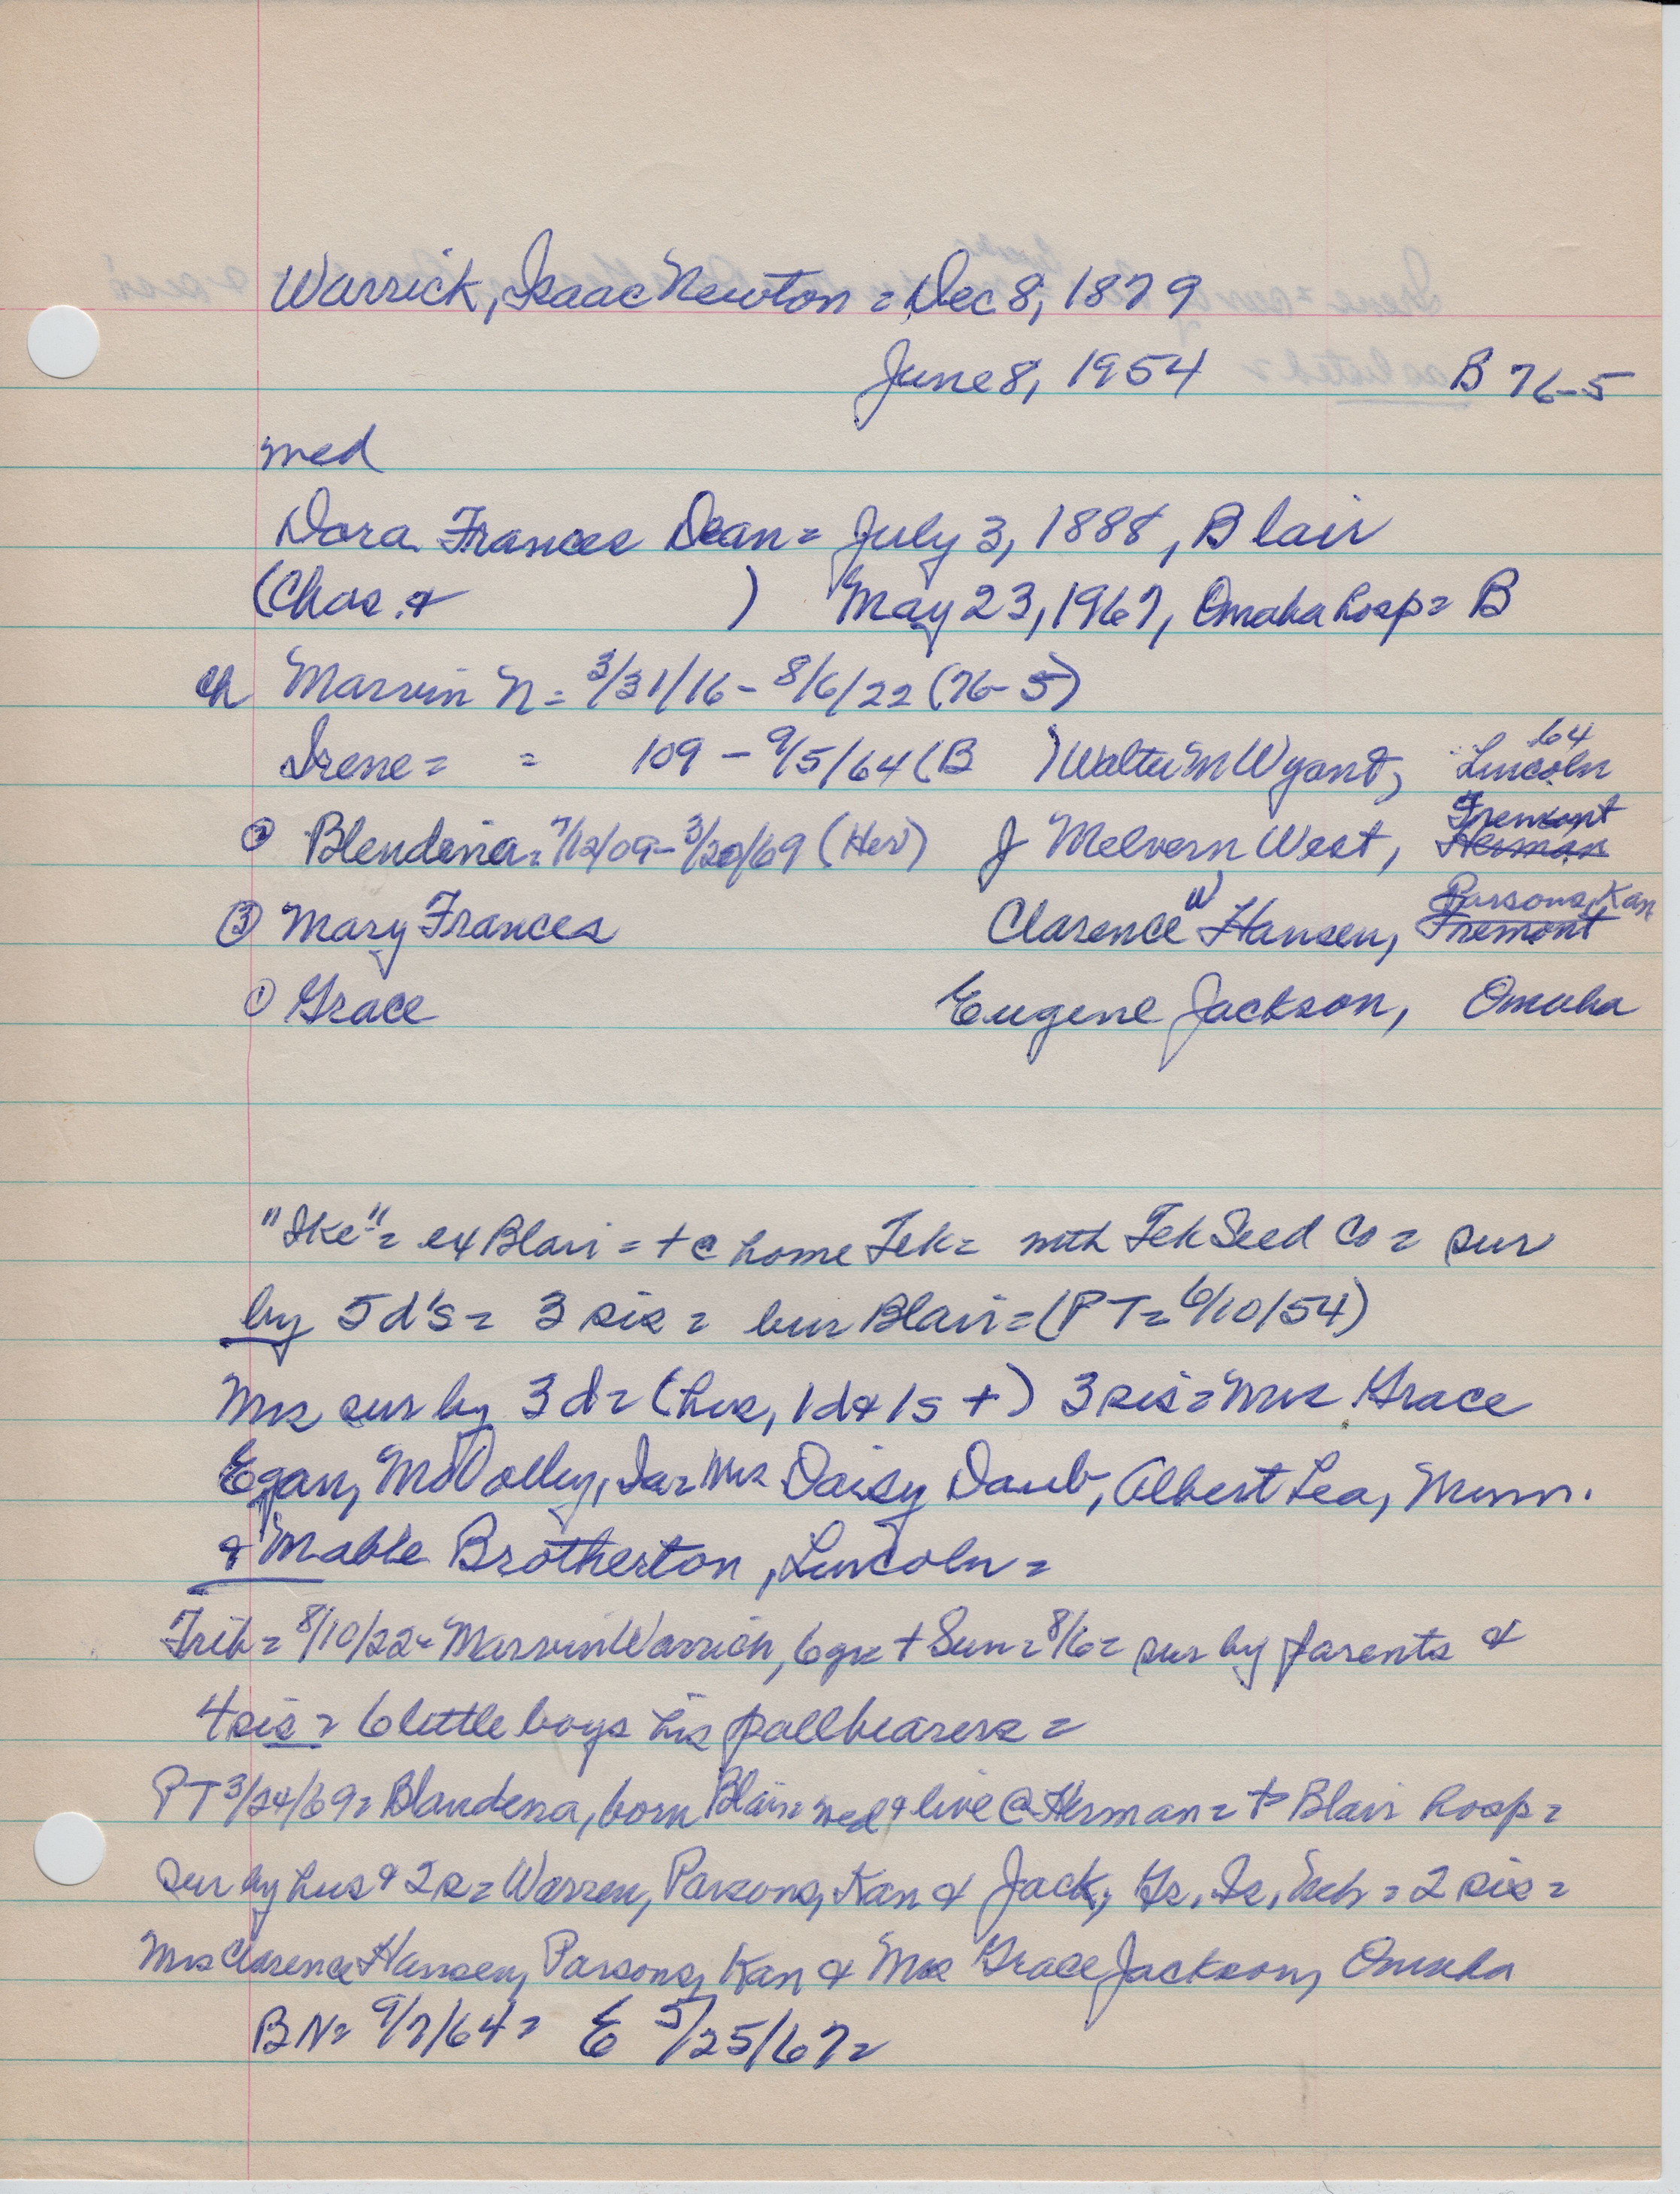 Warrick, Isaac Newton = Dec 8, 1879
June 8, 1954 B 76-5
med
Dora Frances Dean = July 3, 1888, Blair
(Chas. & ) May 23, 1967, Omaha hosp = B
ch Marvin N = 3/31/16 - 8/6/22 (76-5)
64
Irene = = 109 - 9/5/64 (B ) Walter M Wyant, Lincoln
Fremont
② Blendena = 7/12/09 - 3/20/69 (Her) J Melvern West, Herman
W Parsons, Kan
③ Mary Frances Clarence Hansen, Fremont
① Grace Eugene Jackson, Omaha
"Ike" = ex Blair = + @ home Tek = with Tek Seed Co = sur
by 5 d's = 3 sis = bur Blair = (PT = 6/10/54)
Mrs sur by 3 d = (hus, 1 d & 1 s +) 3 sis = Mrs Grace
Egan, Mo Valley, Ia = Mrs Daisy Daub, Albert Lea, Minn.
& Mable Brotherton, Lincoln =
Trib = 8/10/22 = Marvin Warrick, 6 yrs + Sun = 8/6 = sur by parents &
4 sis = 6 little boys his pallbearers =
PT 3/24/69 = Blandena, born Blair = med & live @ Herman = + Blair hosp =
sur by hus & 2 s = Warren, Parsons, Kan & Jack, Gr. Is, Neb = 2 sis =
Mrs Clarence Hansen, Parsons, Kan & Mrs Grace Jackson, Omaha
BN = 9/7/64 = E 5/25/67 =